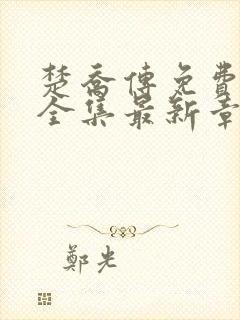 楚喬傳免費
全集最新章
鄭光